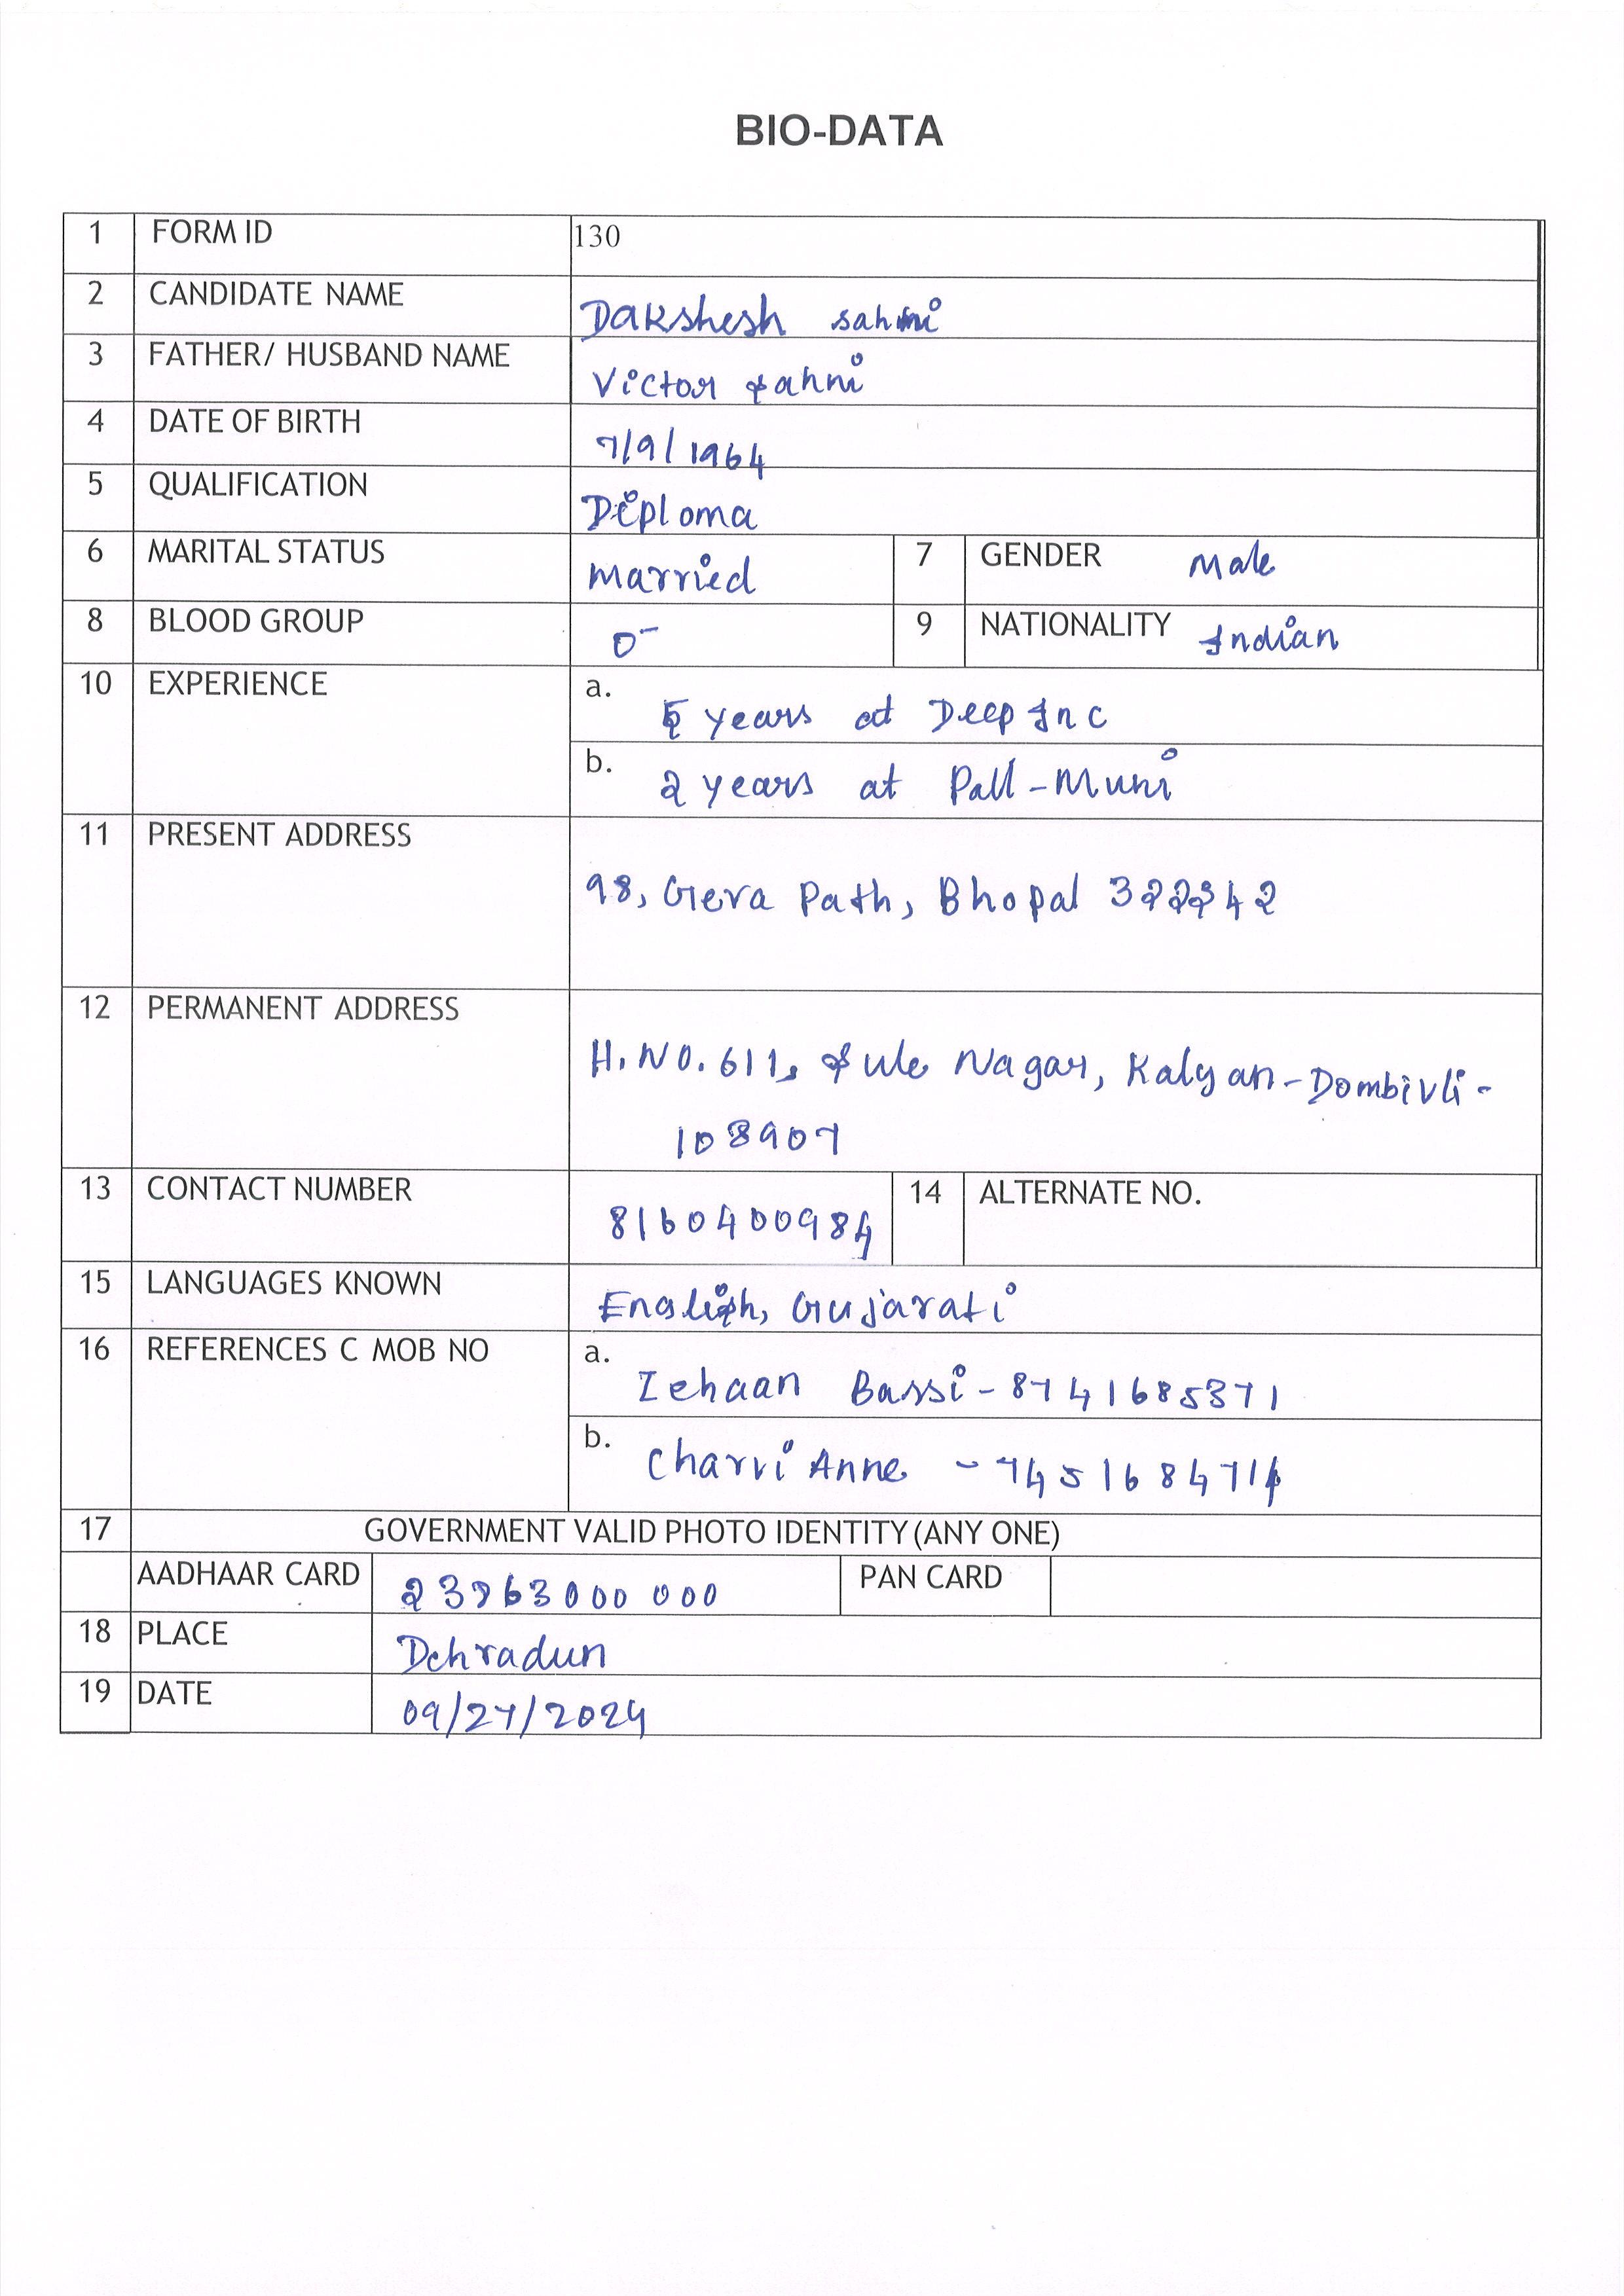 BIO-DATA
1 FORM ID 130
2 CANDIDATE NAME Dakshesh sahni
3 FATHER/ HUSBAND NAME Victor Sahni
4 DATE OF BIRTH 7/9/1964
5 QUALIFICATION Diploma
6 MARITAL STATUS Married 7 GENDER Male
8 BLOOD GROUP O- 9 NATIONALITY Indian
10 EXPERIENCE a. 5 years at Deep Inc
b. 2 years at Pall-Muni
11 PRESENT ADDRESS 98, Gera Path, Bhopal
12 PERMANENT ADDRESS H.NO.611, Sule Nagar, Kalyan-Dombivli-
108907
13 CONTACT NUMBER 8160400984 14 ALTERNATE NO.
15 LANGUAGES KNOWN English, Gujarati
16 REFERENCES C MOB NO a. Zehaan Bassi - 8741685371
b. Charvi Anne - 7451684714
17 GOVERNMENT VALID PHOTO IDENTITY (ANY ONE)
AADHAAR CARD PAN CARD
18 PLACE Dehradun
19 DATE 09/27/2024